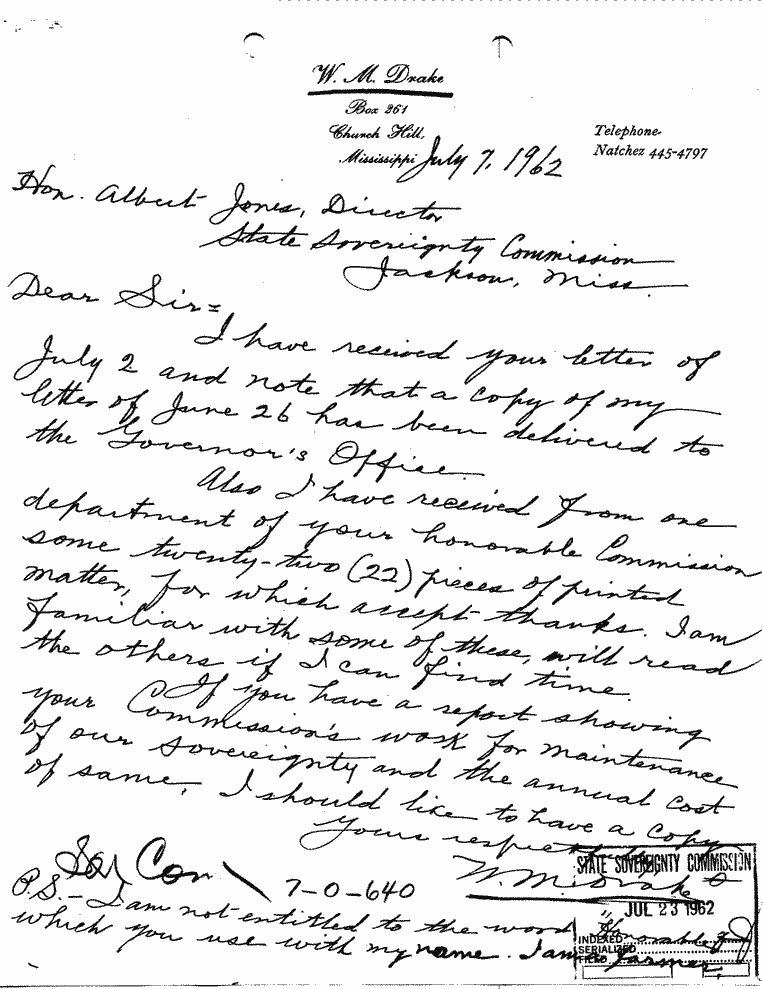 W. M. Drake
Box 261
Church Hill,
Mississippi
Telephone
Natchez 445-4797
July 7, 1962
Hon. Albert Jones, Director
State Sovereignty Commission
Jackson, Miss.
Dear Sir=
I have received your letter of
July 2 and note that a copy of my
letter of June 26 has been delivered to
the Governor's Office.
Also I have received from one
department of your honorable Commission
some twenty-two (22) pieces of printed
matter, for which accept thanks. I am
familiar with some of these, will read
the others if I can find time.
If you have a report showing
your Commission's work for maintenance
of our sovereignty and the annual cost
of same, I should like to have a copy.
Yours respectfully
W. M. Drake
Sov Com
7-0-640
P.S.- I am not entitled to the word "Honorable"
which you use with my name. I am a farmer.
STATE SOVEREIGNTY COMMISSION
JUL 23 1962
INDEXED
SERIALIZED
FILED